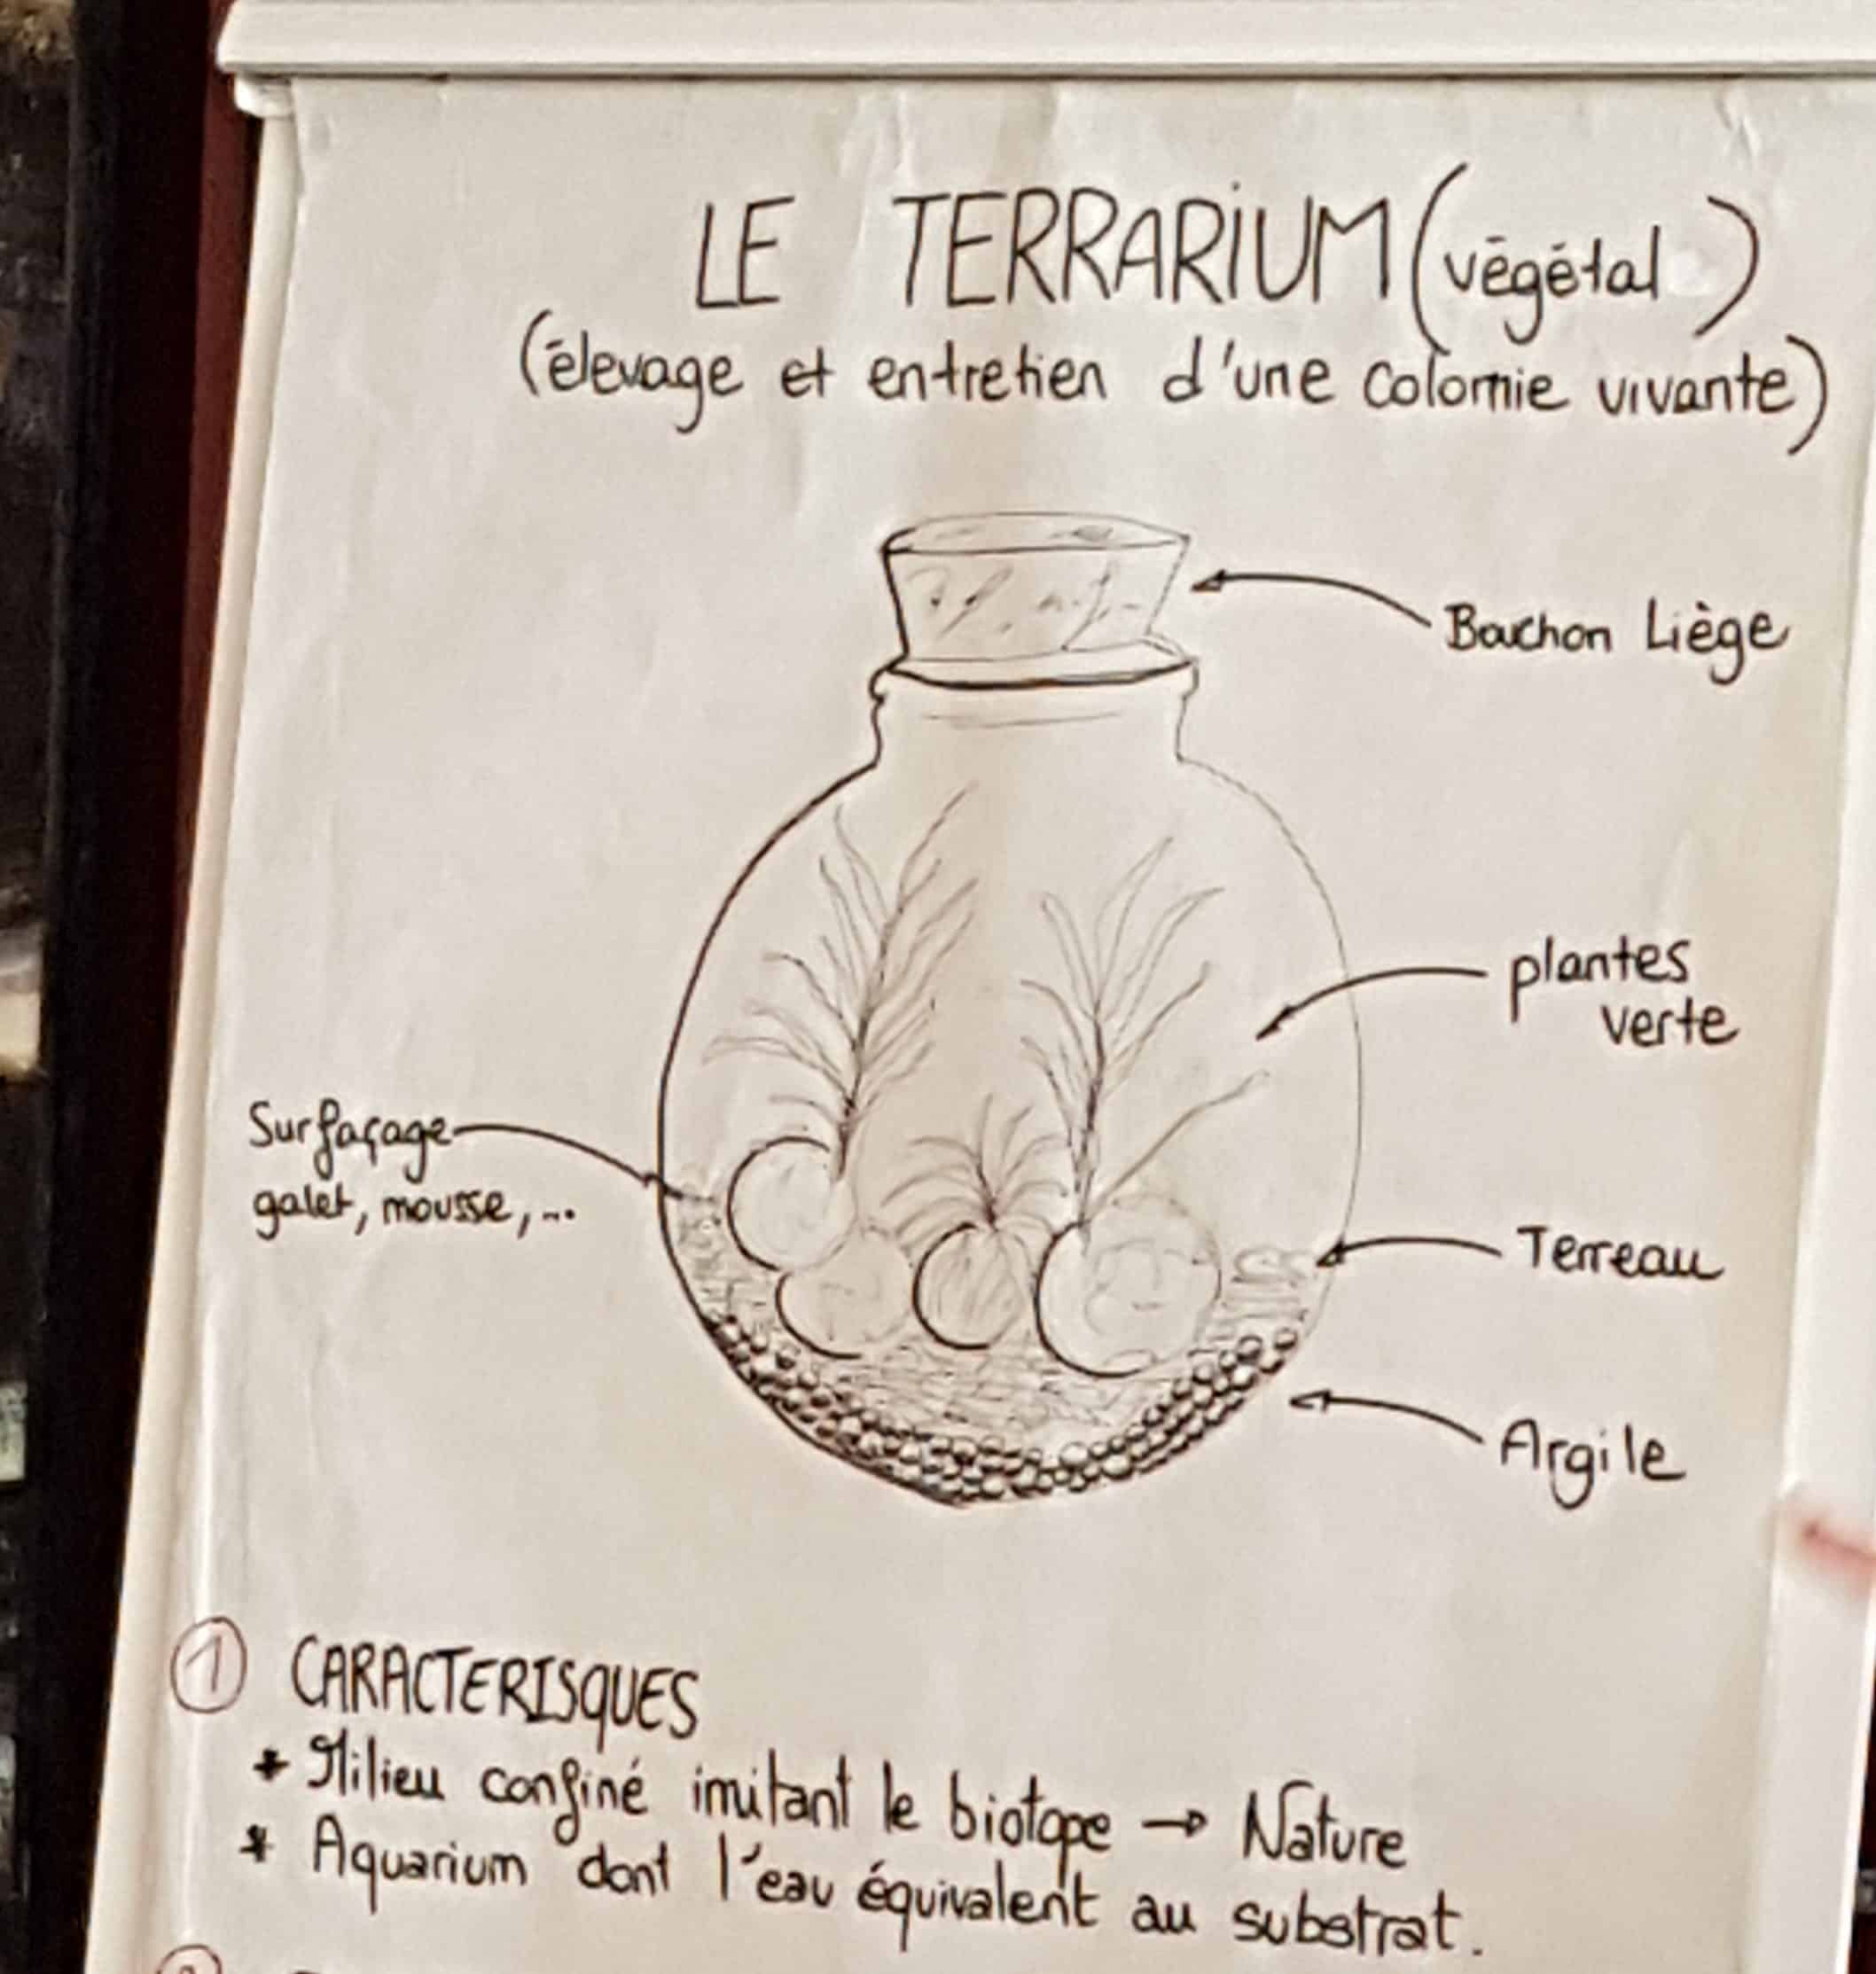 LE TERRARIUM (végétal)
(élevage et entretien d'une colonie vivante)
Bouchon Liège
plantes
verte
Surfaçage
galet, mousse, ...
Terreau
Argile
1 CARACTERISQUES
* Milieu confiné imitant le biotope → Nature
* Aquarium dont l'eau équivalent au substrat.